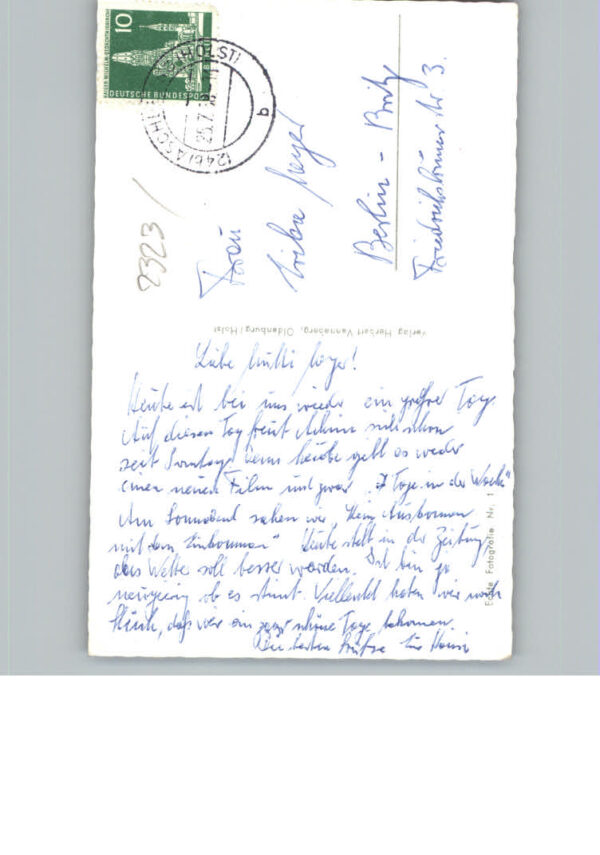 10
DEUTSCHE BUNDESPOST
(24b)
25.7.
b
2323
Frau
Erika Meyer
Berlin - Britz
Nr 3.
Verlag Herbert Vannaberg, Oldenburg/Holst
Liebe Mutti Meyer!
Heute ist bei uns wieder ein großer Tag.
Auf diesen Tag freut Achim sich schon
seit Sonntag, denn heute gibt es wieder
einen neuen Film und zwar "7 Tage in der Woche"
Am Sonnabend sahen wir "Kein Auskommen
mit dem Einkommen" Heute steht in der Zeitung,
das Wetter soll besser werden. Ich bin ja
neugierig ob es stimmt. Vielleicht haben wir noch
Glück, daß wir ein paar schöne Tage bekommen.
Die besten Grüße
Echte Fotografie Nr. 1